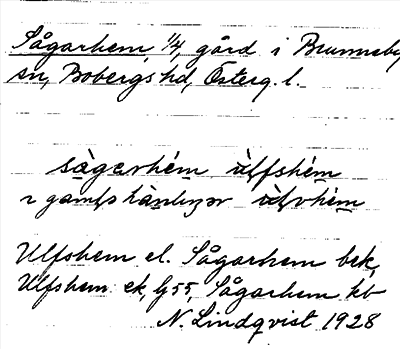 Sågarhem, 1/4, gård i Brunneby
sn, Bobergs hd, Österg. l.
sàgarhém ùlfshém
gamla ùlvhém
Ulfshem el. Sågarhem bek,
Ulfshem ek, lg 55, Sågarhem kb
N. Lindqvist 1928